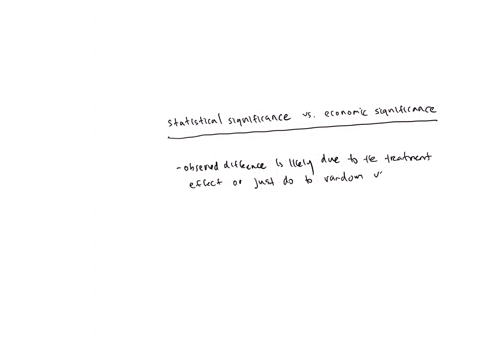 statistical significance vs. economic significance
- observed difference is likely due to the treatment
effect or just do to random